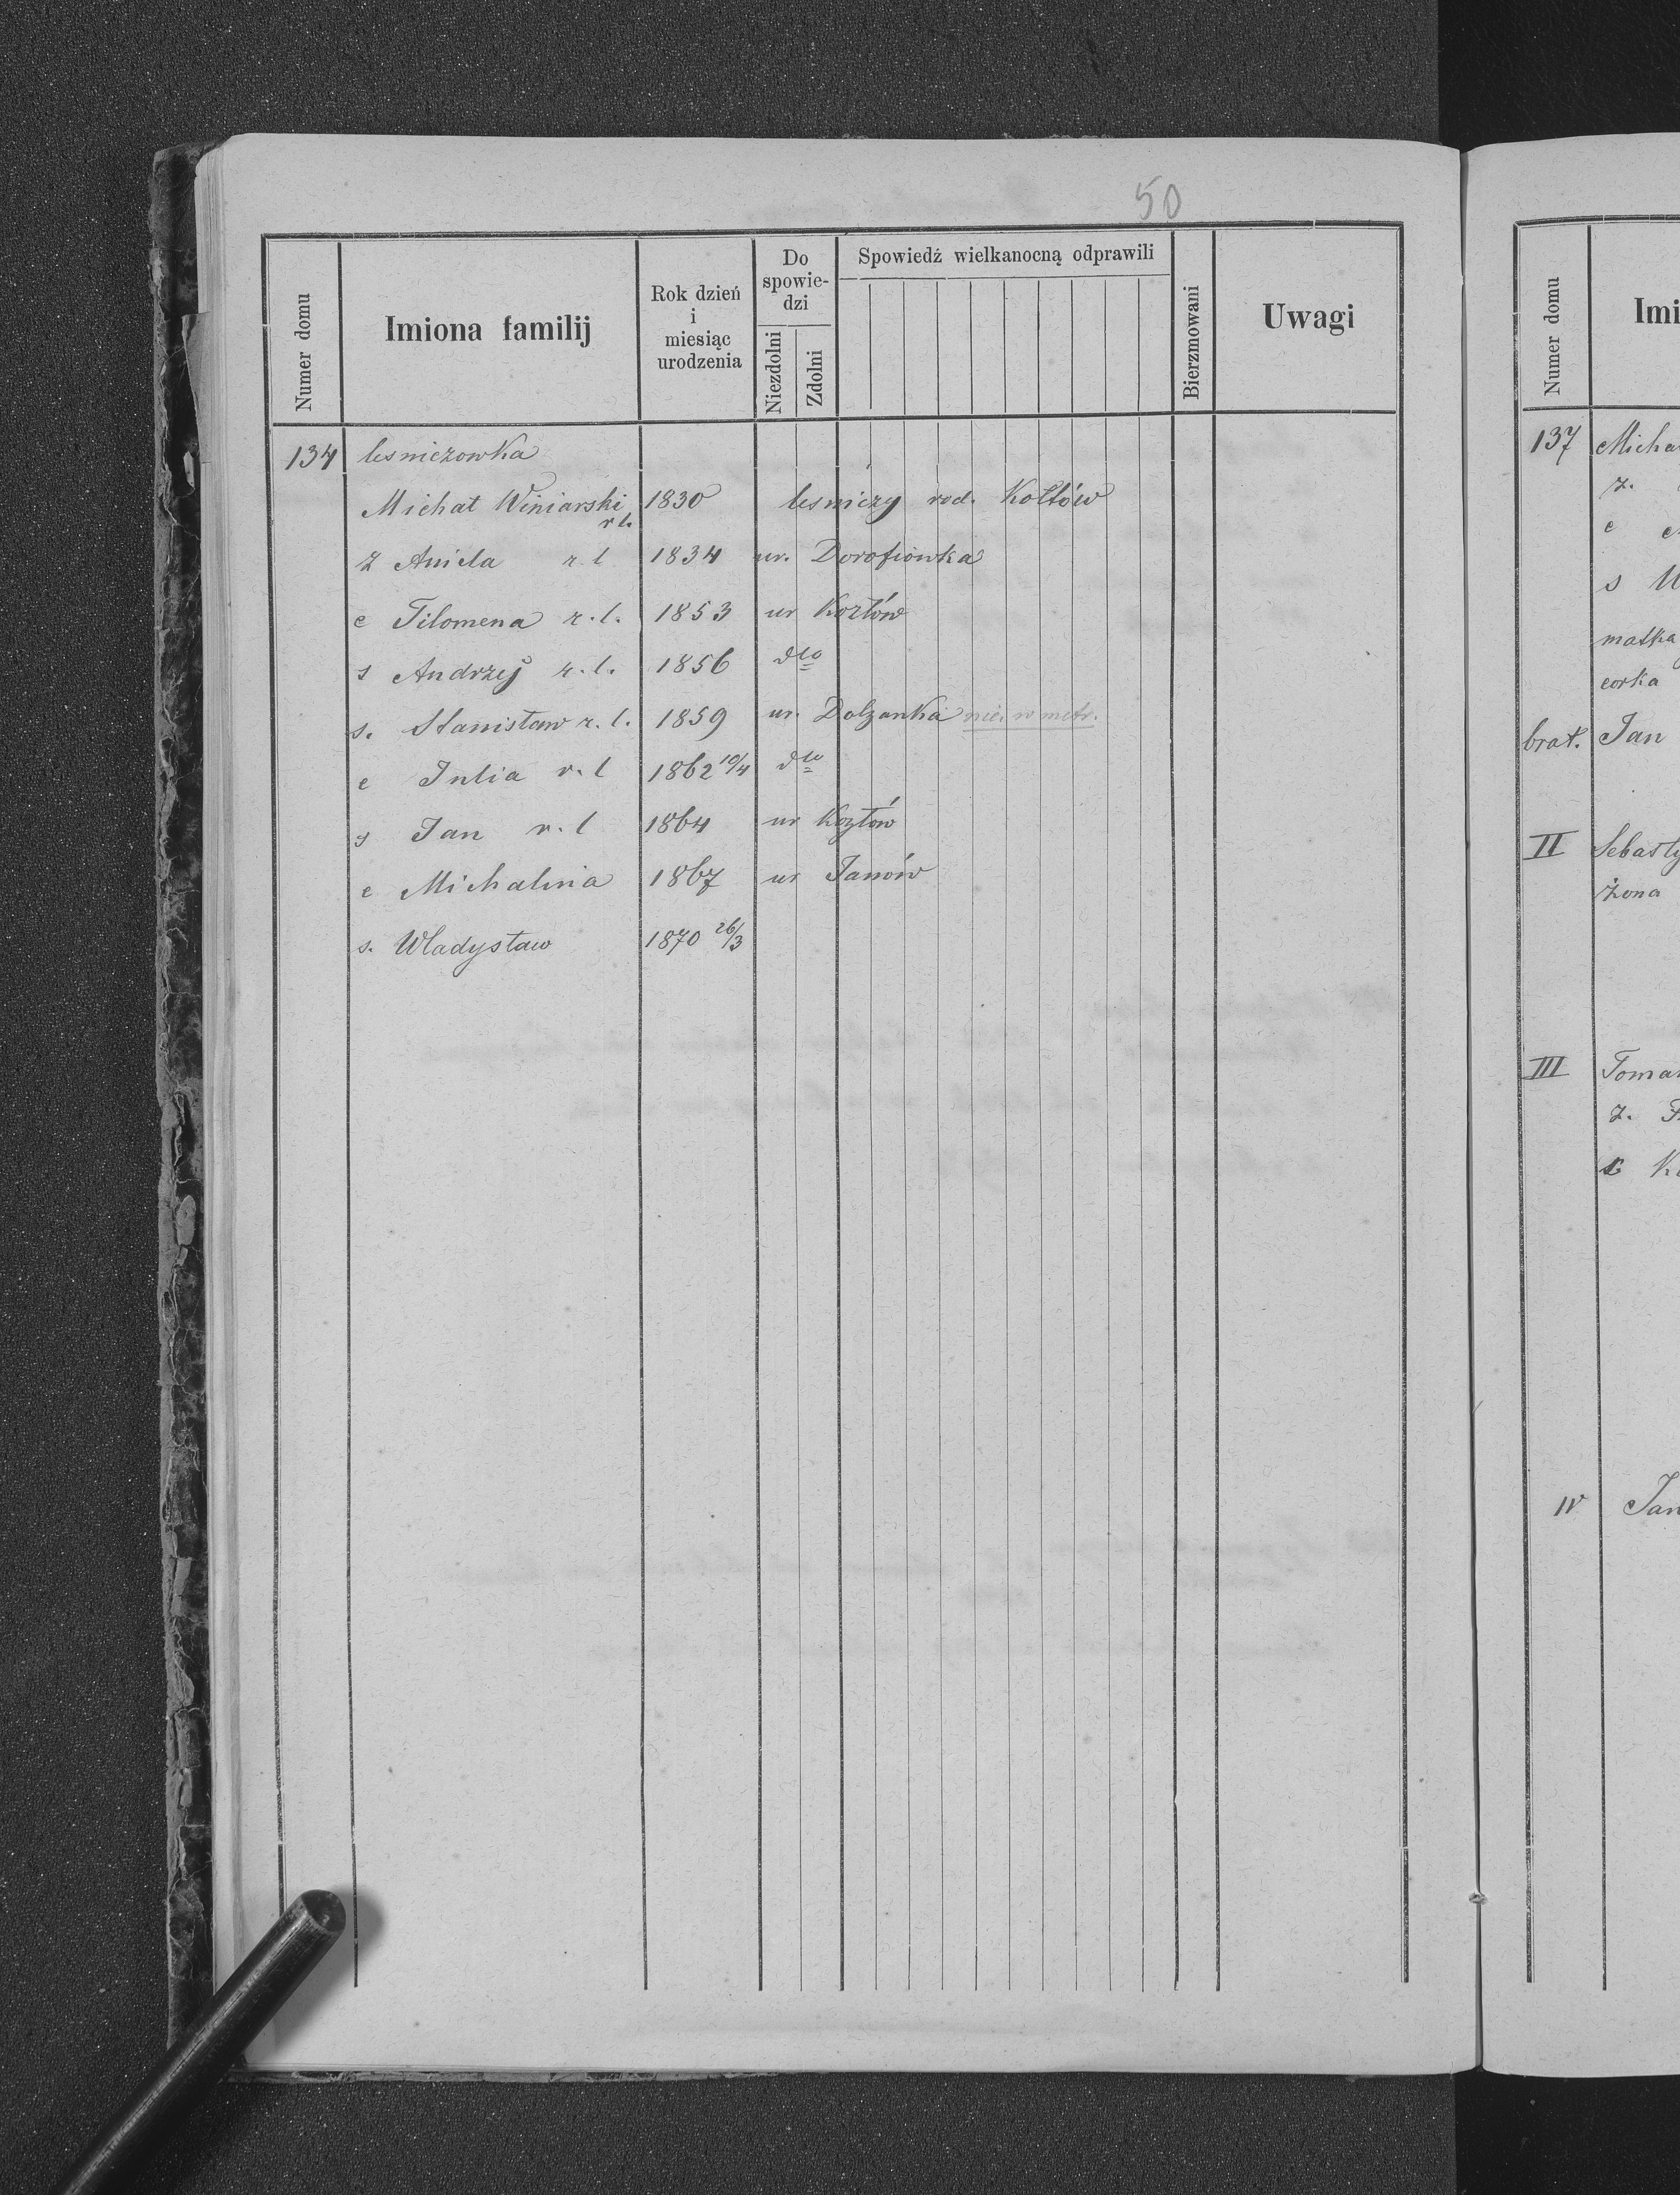 50
Numer domu
Imiona familij
Rok dzień
i
miesiąc
urodzenia
Do
spowie-
dzi
Niezdolni
Zdolni
Spowiedź wielkanocną odprawili
Bierzmowani
Uwagi
134 lesniczowka
Michał Winiarski r l. 1830 lesniczy rod. Kołtów
ż Aniela r. l 1834 ur. Dorofiowka
c Filomena r. l. 1853 ur Kozłów
s Andrzej r. l. 1856 dto
s. Stanisław r. l. 1859 ur. Dolzanka nie. w metr.
c Julia r. l 1862 10/4 dto
s Jan r. l 1864 ur Kozłów
c Michalina 1867 ur Janów
s. Władysław 1870 26/3
Numer domu
Imi
137 Micha
ż.
c
s
matka
corka
brat. Jan
II Sebasty
Żona
III Toma
ż.
IV Jan